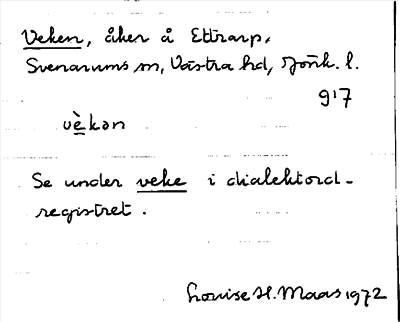 Veken, åker å Ettrarp,
Svenarums sn, Västra hd, Jönk. l.
917
vè̱kən
Se under veke i dialektord-
registret.
Louise H. Maas 1972